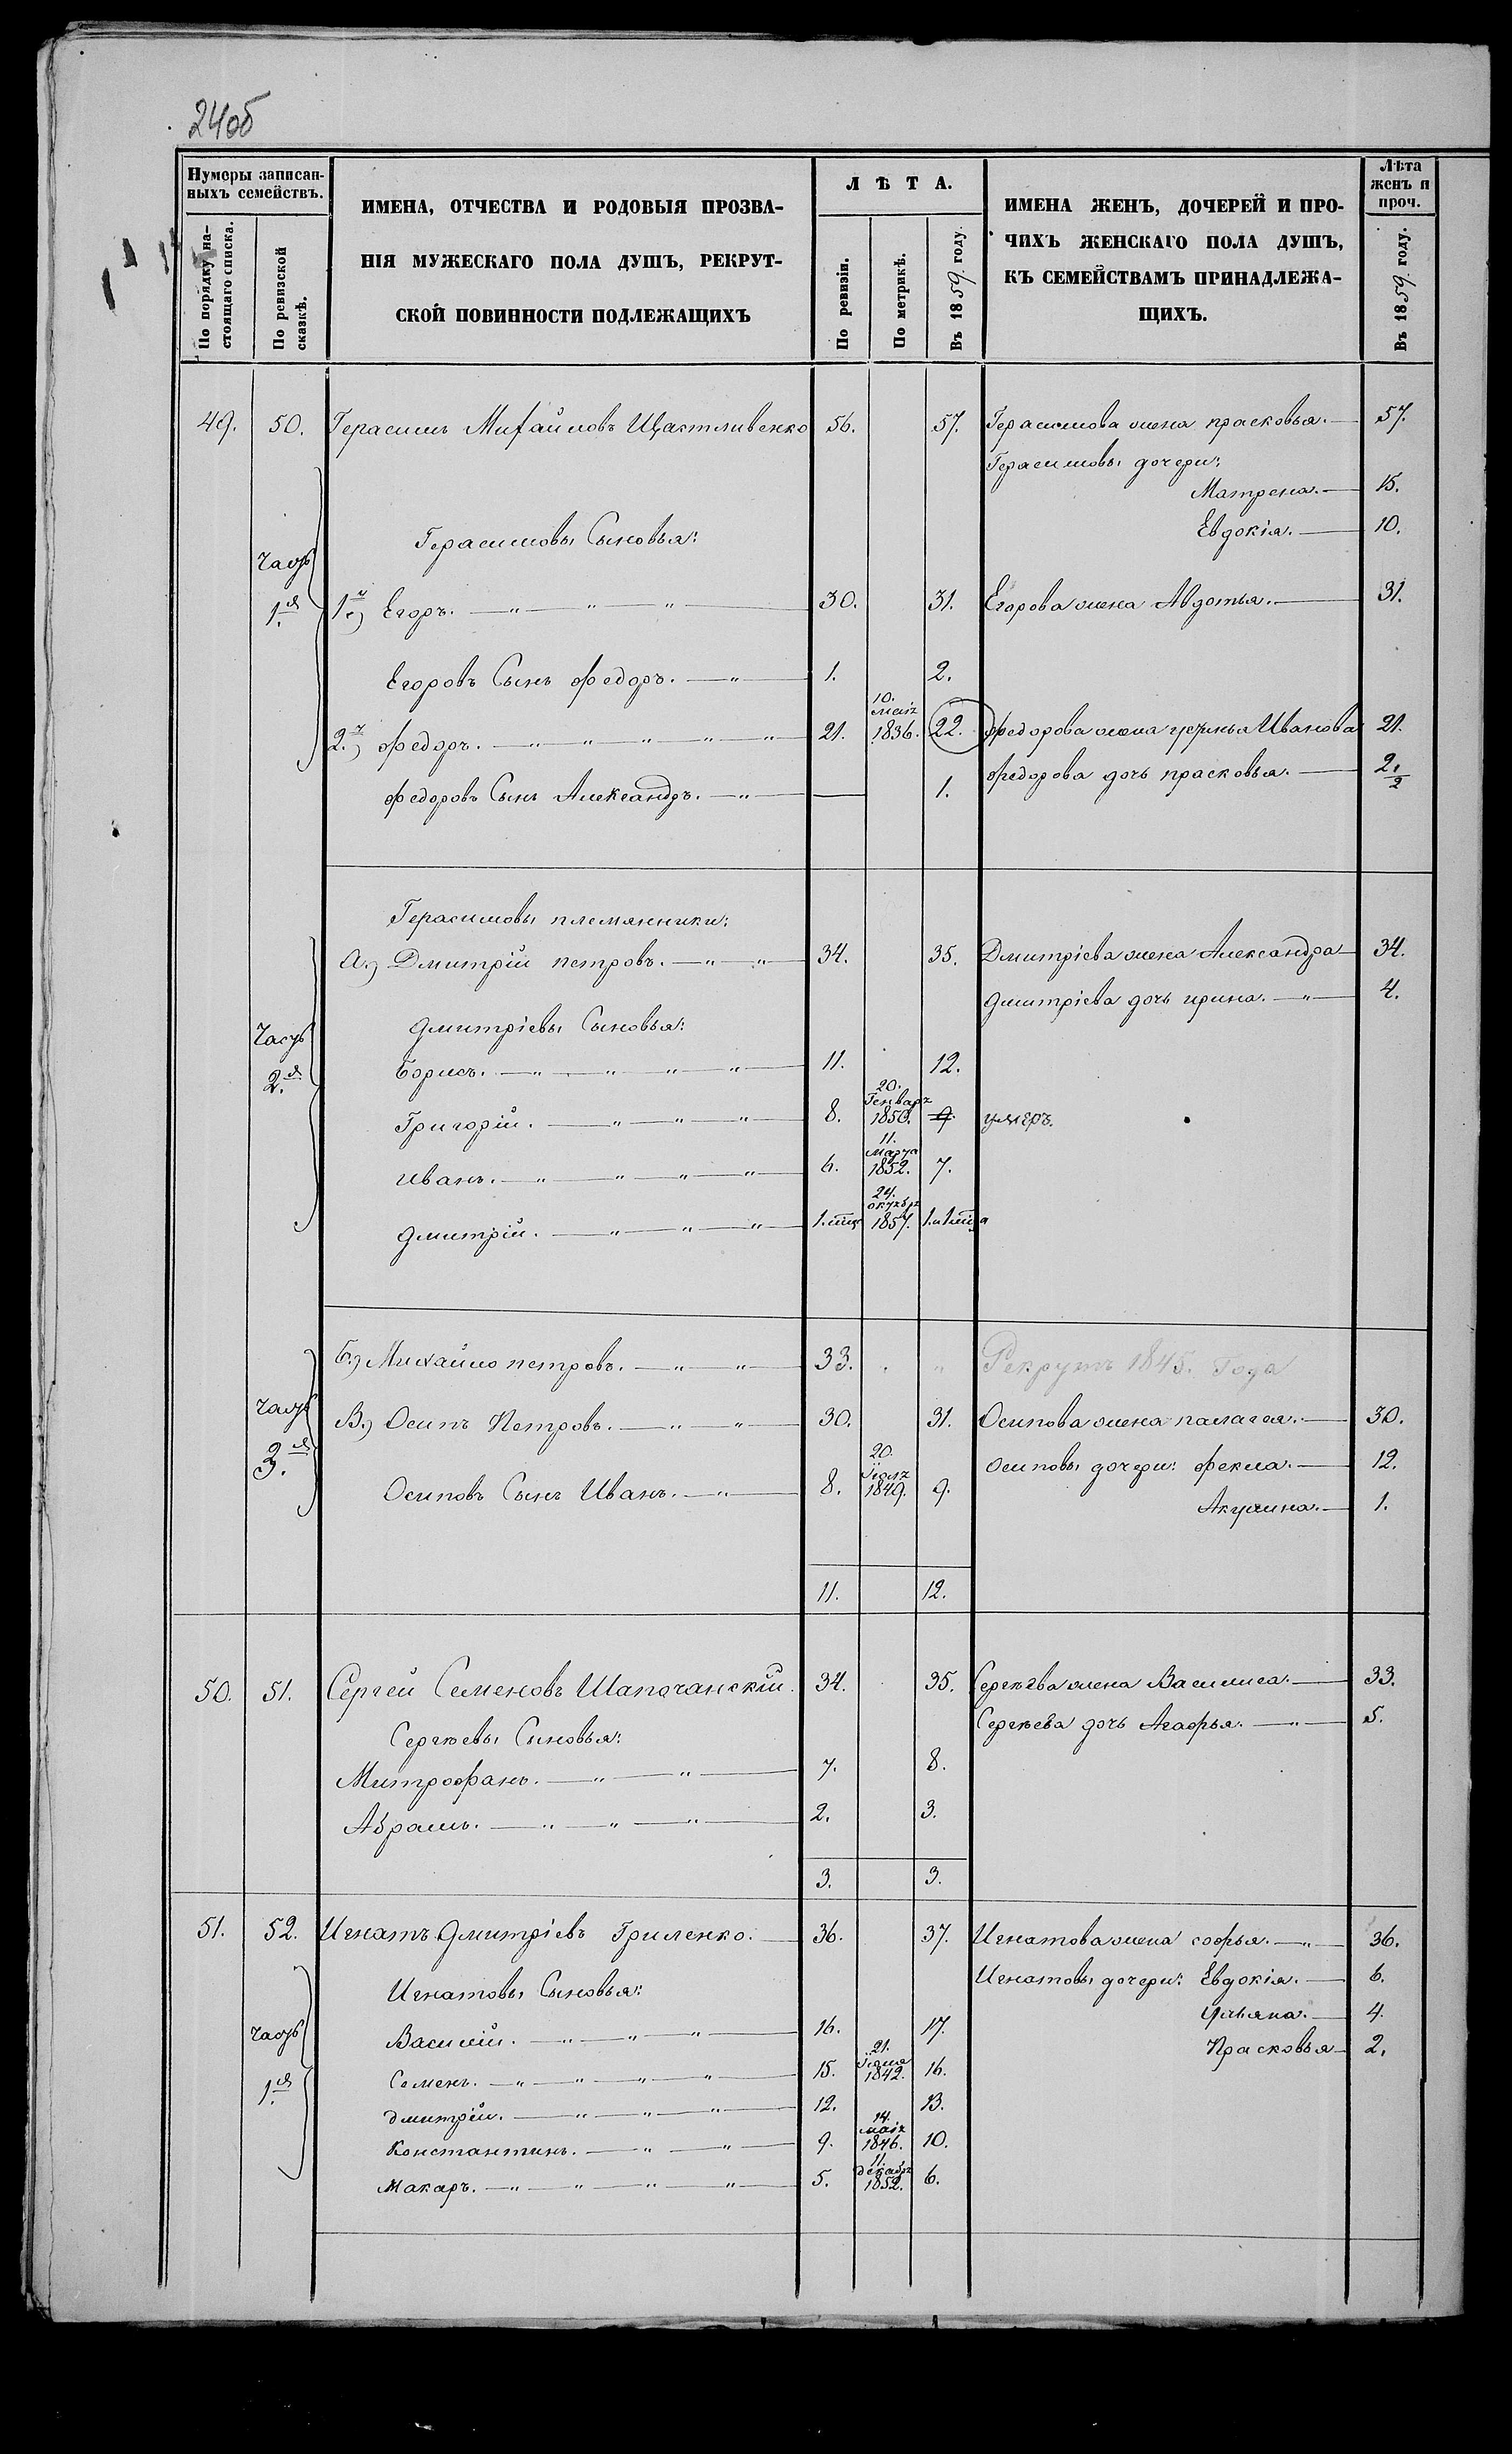 24об
Нумеры записанныхъ семействъ.
По порядку настоящаго списка.
По ревизской сказкѣ.
ИМЕНА, ОТЧЕСТВА И РОДОВЫЯ ПРОЗВА-
НІЯ МУЖЕСКАГО ПОЛА ДУШЪ, РЕКРУТ-
СКОЙ ПОВИННОСТИ ПОДЛЕЖАЩИХЪ
ЛѢТА.
По ревизіи.
По метрикѣ.
Въ 1859 году.
ИМЕНА ЖЕНЪ, ДОЧЕРЕЙ И ПРО-
ЧИХЪ ЖЕНСКАГО ПОЛА ДУШЪ,
КЪ СЕМЕЙСТВАМЪ ПРИНАДЛЕЖА-
ЩИХЪ.
Лѣта женъ и проч.
Въ 1859 году.
49. 50. Герасимъ Михайловъ Щастливенко 56. 57. Герасимова жена прасковья. 57.
Герасимовы дочери:
Матрена. 15.
Евдокія. 10.
Герасимовы Сыновья:
Часть 1я
1й) Егоръ. 30. 31. Егорова жена Авдотья. 31.
Егоровъ Сынъ федоръ. 1. 2.
2.й) федоръ. 21. 10. маія 1836. 22. федорова жена устинья Иванова 21.
федорова дочь прасковья. 2. 1/2
федоровъ Сынъ Александръ. 1.
Герасимовы племянники:
а.) Дмитрій петровъ. 34. 35. Дмитріева жена Александра 34.
дмитріева дочь ирина. 4.
Часть 2.я
дмитріевы Сыновья:
Борисъ. 11. 12.
Григорій. 8. 20. Генваря 1850. 9. умеръ.
иванъ. 6. 11. Марта 1852. 7.
дмитрій. 24. октября 1857.
Б.) Михайло петровъ. 33. Рекрутъ 1845. Года
Часть 3.я
В.) Осипъ Петровъ. 30. 31. Осипова жена палагея. 30.
Осиповы дочери: фекла. 12.
Осиповъ Сынъ Иванъ. 8. 20. 1849. 9.
Акулина. 1.
11. 12.
50. 51. Сергей Семеновъ Шапочанскій. 34. 35. Сергѣева жена Василиса. 33.
Сергѣева дочь Агафья. 5.
Сергѣевы Сыновья:
Митрофанъ. 7. 8.
Абрамъ. 2. 3.
3. 3.
51. 52. Игнатъ дмитріевъ Гриленко. 36. 37. Игнатова жена софья. 36.
Игнатовы дочери: Евдокія. 6.
Игнатовы Сыновья:
ульяна. 4.
Часть 1.я
Василій. 16. 17.
Прасковья 2.
Семенъ. 15. 21. 1842. 16.
дмитрій. 12. 13.
Константинъ. 9. 14. маія 1846. 10.
Макаръ. 5. 11. декабря 1852. 6.